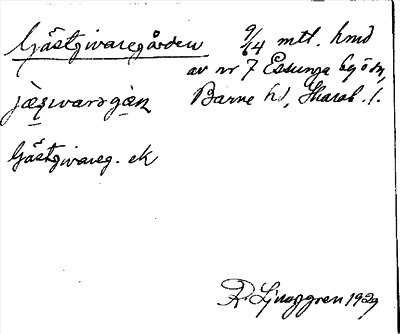 Gästgivaregården 9/64 mtl. hmd
av nr 7 Essunga by o sn,
Barne hd, Skarab. l.
Gästgivareg. ek
R. Ljunggren 1929